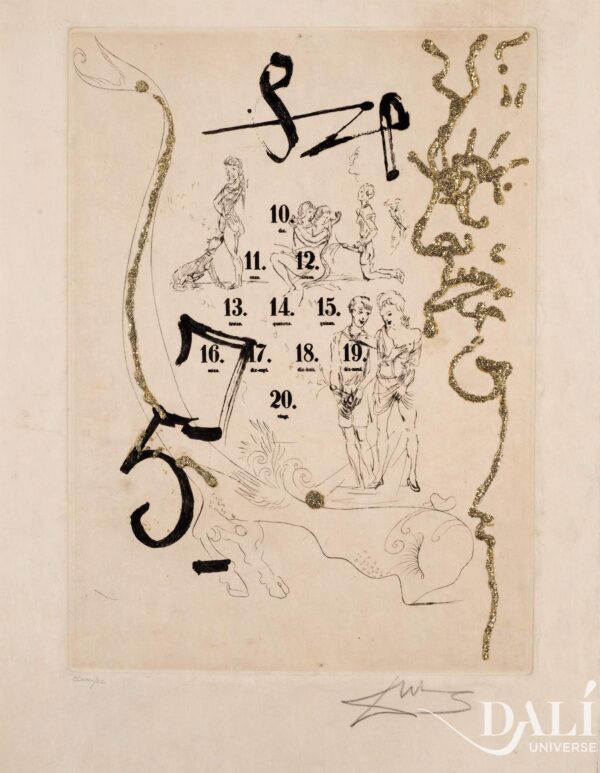 10.
dix.
11. 12.
onze. douze.
13. 14. 15.
treize. quatorze. quinze.
16. 17. 18. 19.
seize. dix-sept. dix-huit. dix-neuf.
20.
vingt.
7
5
DALÍ
UNIVERSE